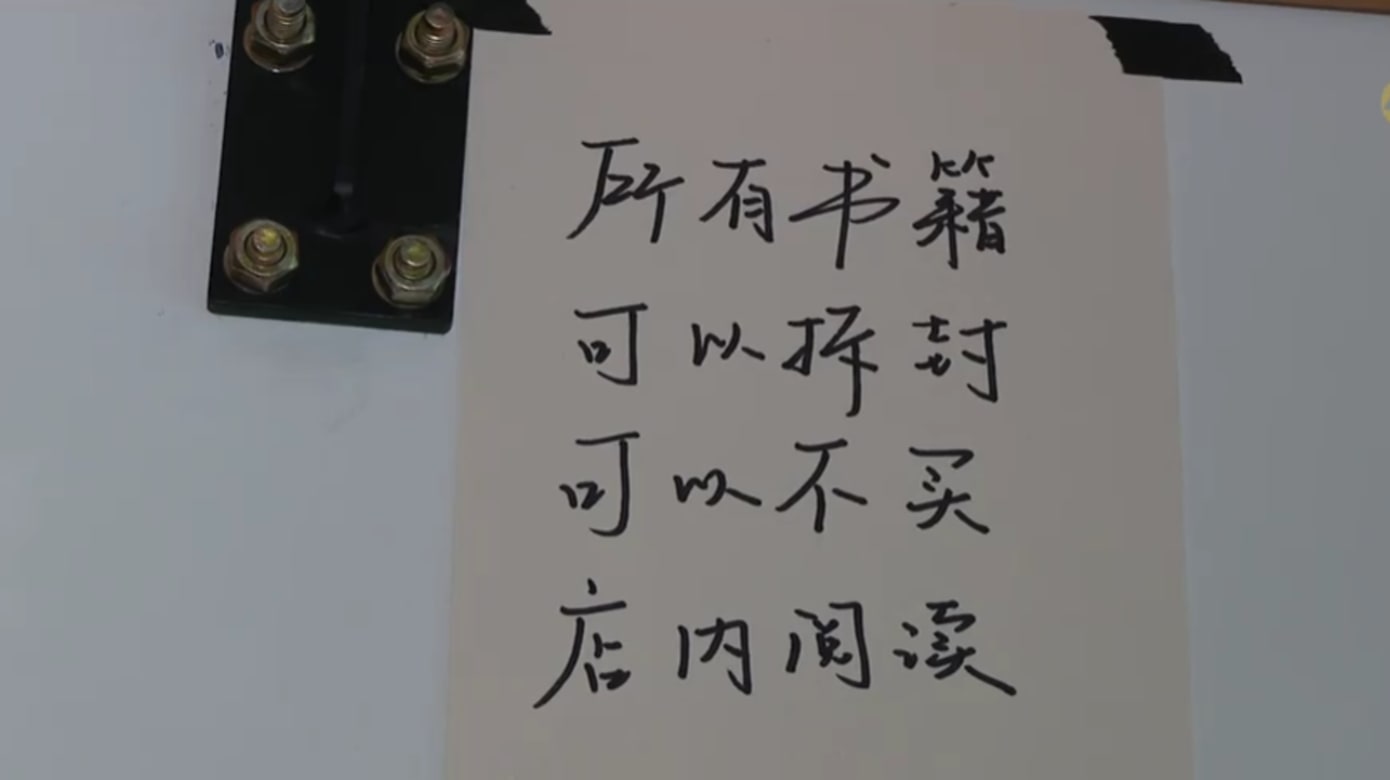 所有书籍
可以拆封
可以不买
店内阅读